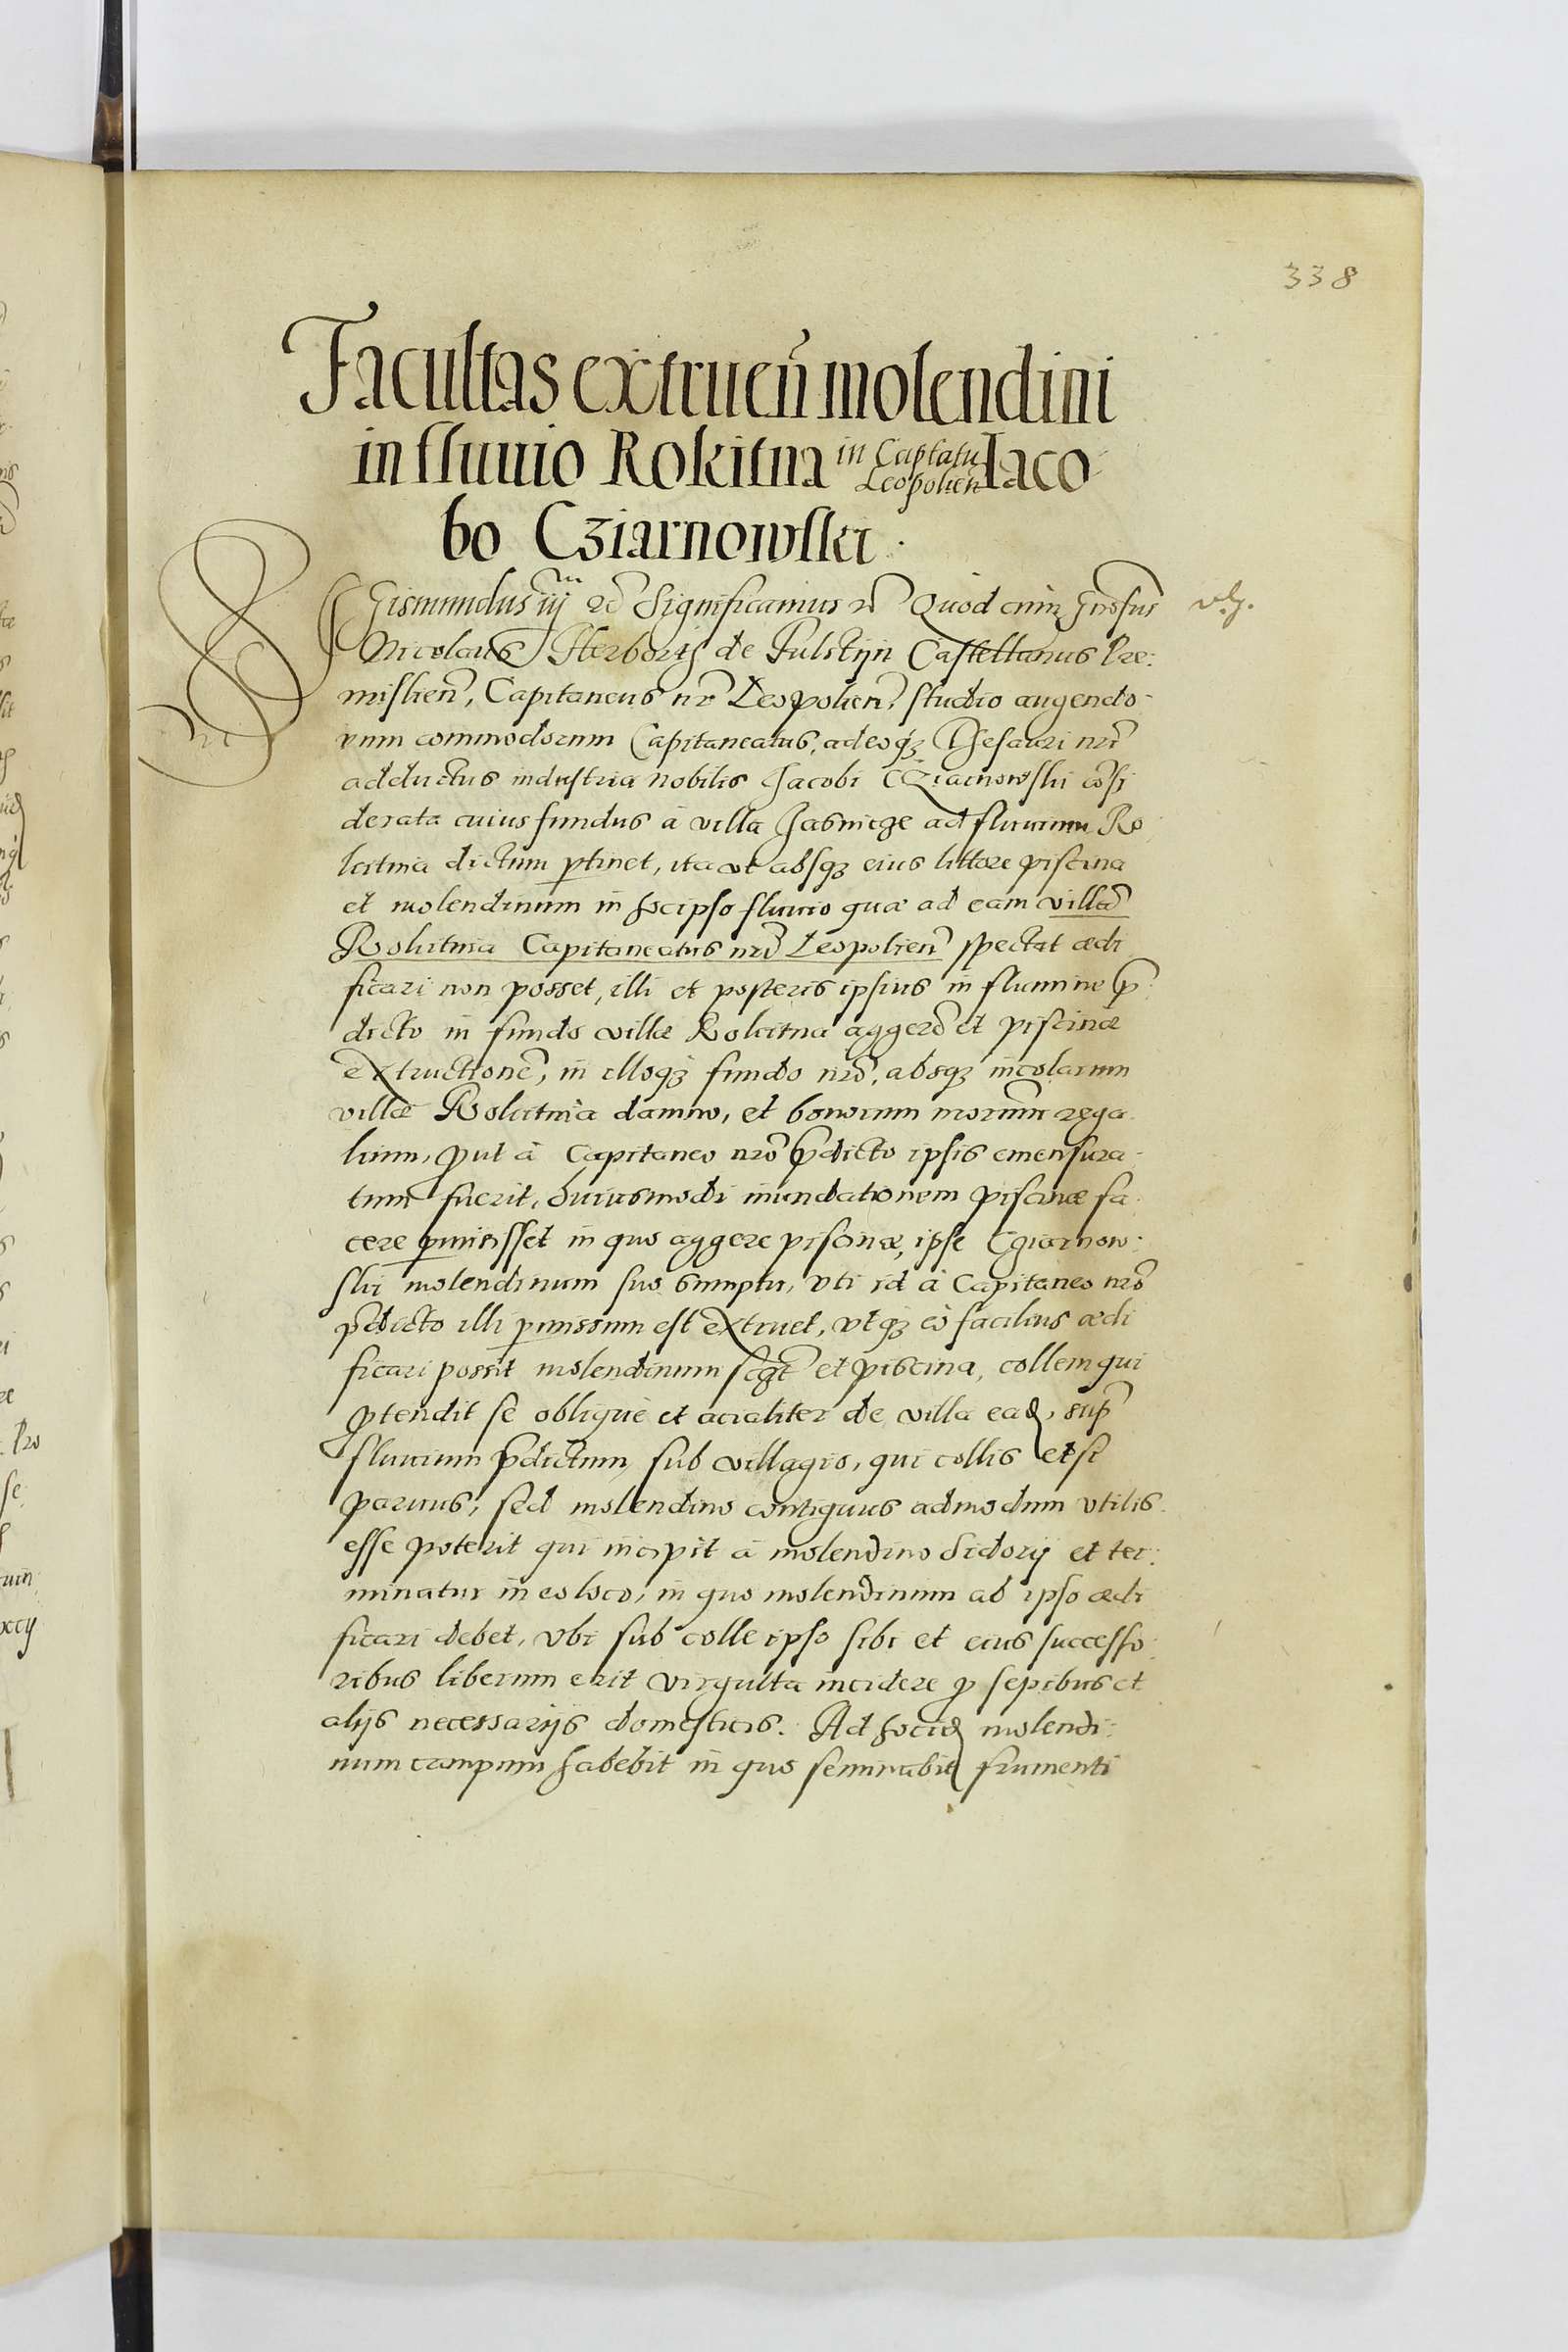 338
Facultas extruen̄ molendini
in fluuio Rokitna in Captatu Leopolien̄ Iaco
bo Cziarnowski.
Sigismundus iij etc Significamus etc Quod cum gnosus
Nicolaus Herborth de Fulstijn Castellanus Pre:
mislien̄, Capitaneus nr̄ Leopolien̄, studio augendo
rum commodorum Capitaneatus, adeoq3 Thesauri nrī
adductus industria nobilis Jacobi CZiarnowski cōsi
derata cuius fundus à villa Jasnicze ad fluuium Ro
kitna dictum ptinet, ita vt absq3 eius littore piscina
et molendinum in hocipso fluuio quæ ad eam villā
Rokitna Capitaneatus nrī Leopolien̄ spectat ædi
ficari non posset, illi et posteris ipsius in flumine p̄
dicto in fundo villæ Rokitna aggerē et piscinæ
extructionē, in illoq3 fundo nrō, absq3 incolarum
villæ Rokitna damno, et bonorum nrorum rega
lium, put à Capitaneo nrō p̄dicto ipsis emensura
tum fuerit, huiusmodi inundationem piscinæ fa
cere pmisisset in quo aggere piscinæ, ipse Cziarnow
ski molendinum suo sumptu, vti id à Capitaneo nrō
p̄dicto illi pmissum est extruet, vtq3 eò facilius ædi
ficari possit molendinum et piscina, collem qui
ptendit se obliquè et acialiter de villa ead, sup̄
fluuium p̄dictum, sub villagio, qui collis etsi
paruus, sed molendino contiguus admodum vtilis
esse poterit qui incipit à molendino Sidorij et ter:
minatur in eo loco, in quo molendinum ab ipso ædi
ficari debet, vbi sub colle ipso sibi et eius successo
ribus liberum erit virgulta incidere p sepibus et
alijs necessarijs domesticis. Ad hocid molendi:
num campum habebit in quo seminabit frumenti